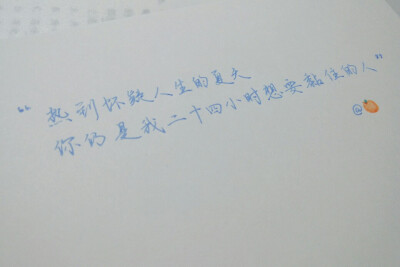 “热到怀疑人生的夏天
你仍是我二十四小时想要黏住的人”
@🍊